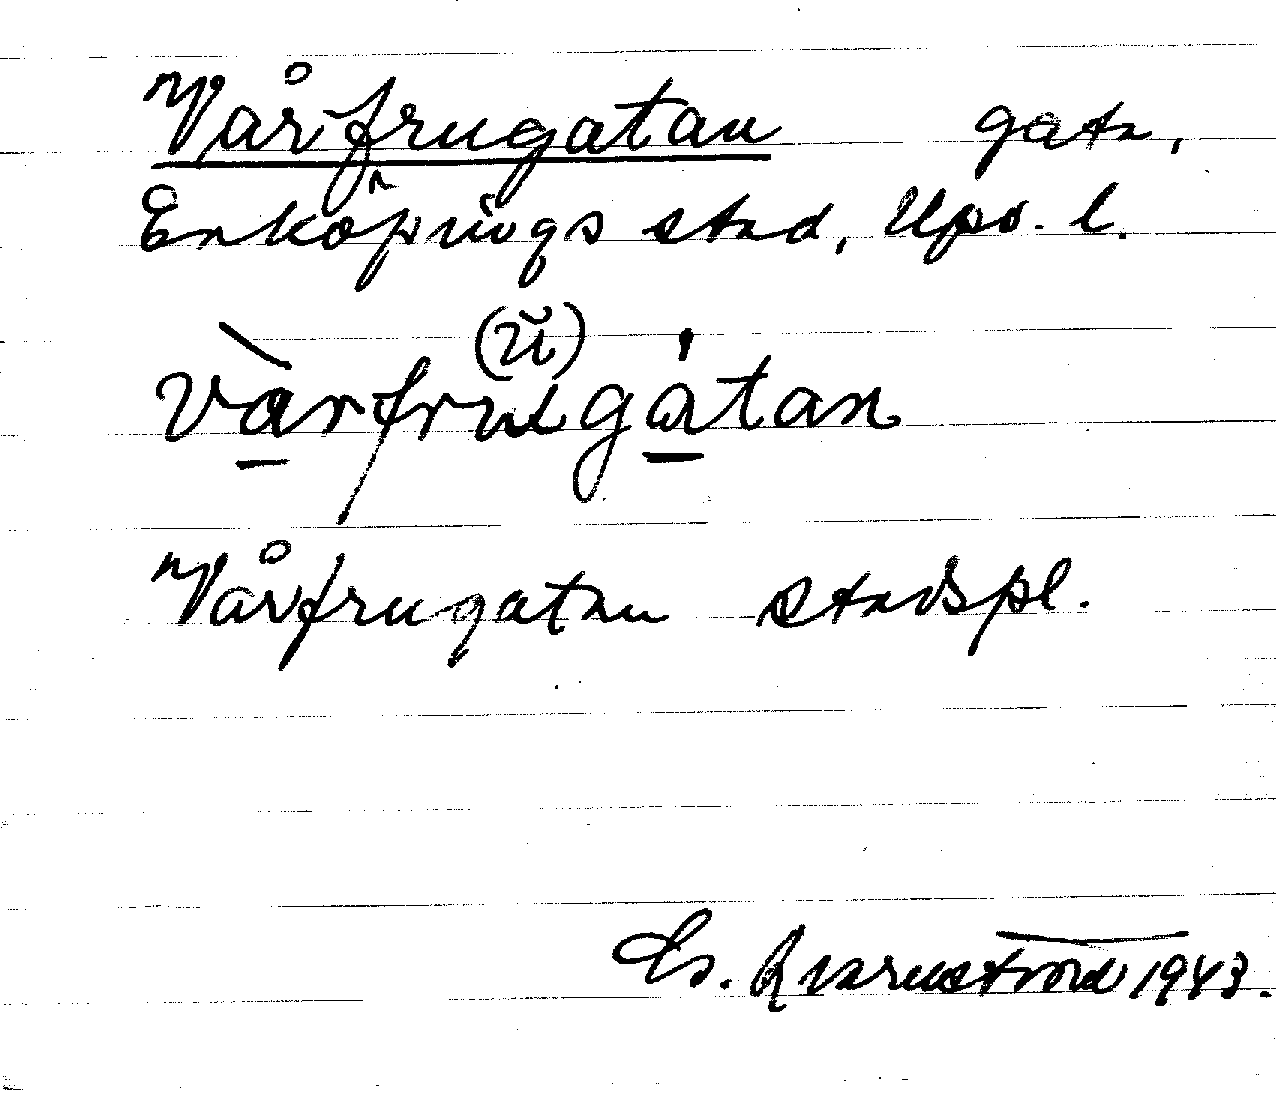 Vårfrugatan gata,
Enköpings stad, Upps. l.
(ŭ)
vàrfrugátan
Vårfrugatan stadspl.
Es. Kvarnström 1943.